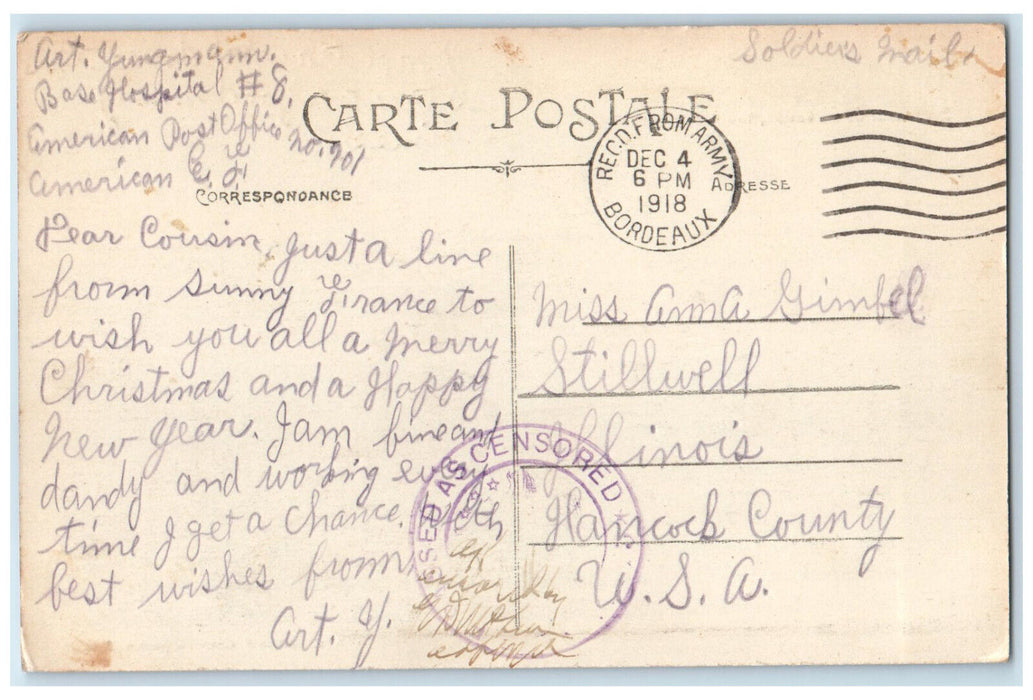 Art. Yungmann.
Base Hospital #8,
American Post Office no. 901
American E. F.
Soldiers Mail
CARTE POSTALE
CORRESPONDANCE
ADRESSE
REC'D. FROM ARMY
DEC 4
6 PM
1918
BORDEAUX
Dear Cousin, Just a line
from sunny France to
wish you all a Merry
Christmas and a Happy
New Year. I am fine and
dandy and working every
time I get a chance. With
best wishes from,
Art. Y.
Miss Anna Gimbel
Stillwell
Illinois
Hancock County
U. S. A.
CENSORED